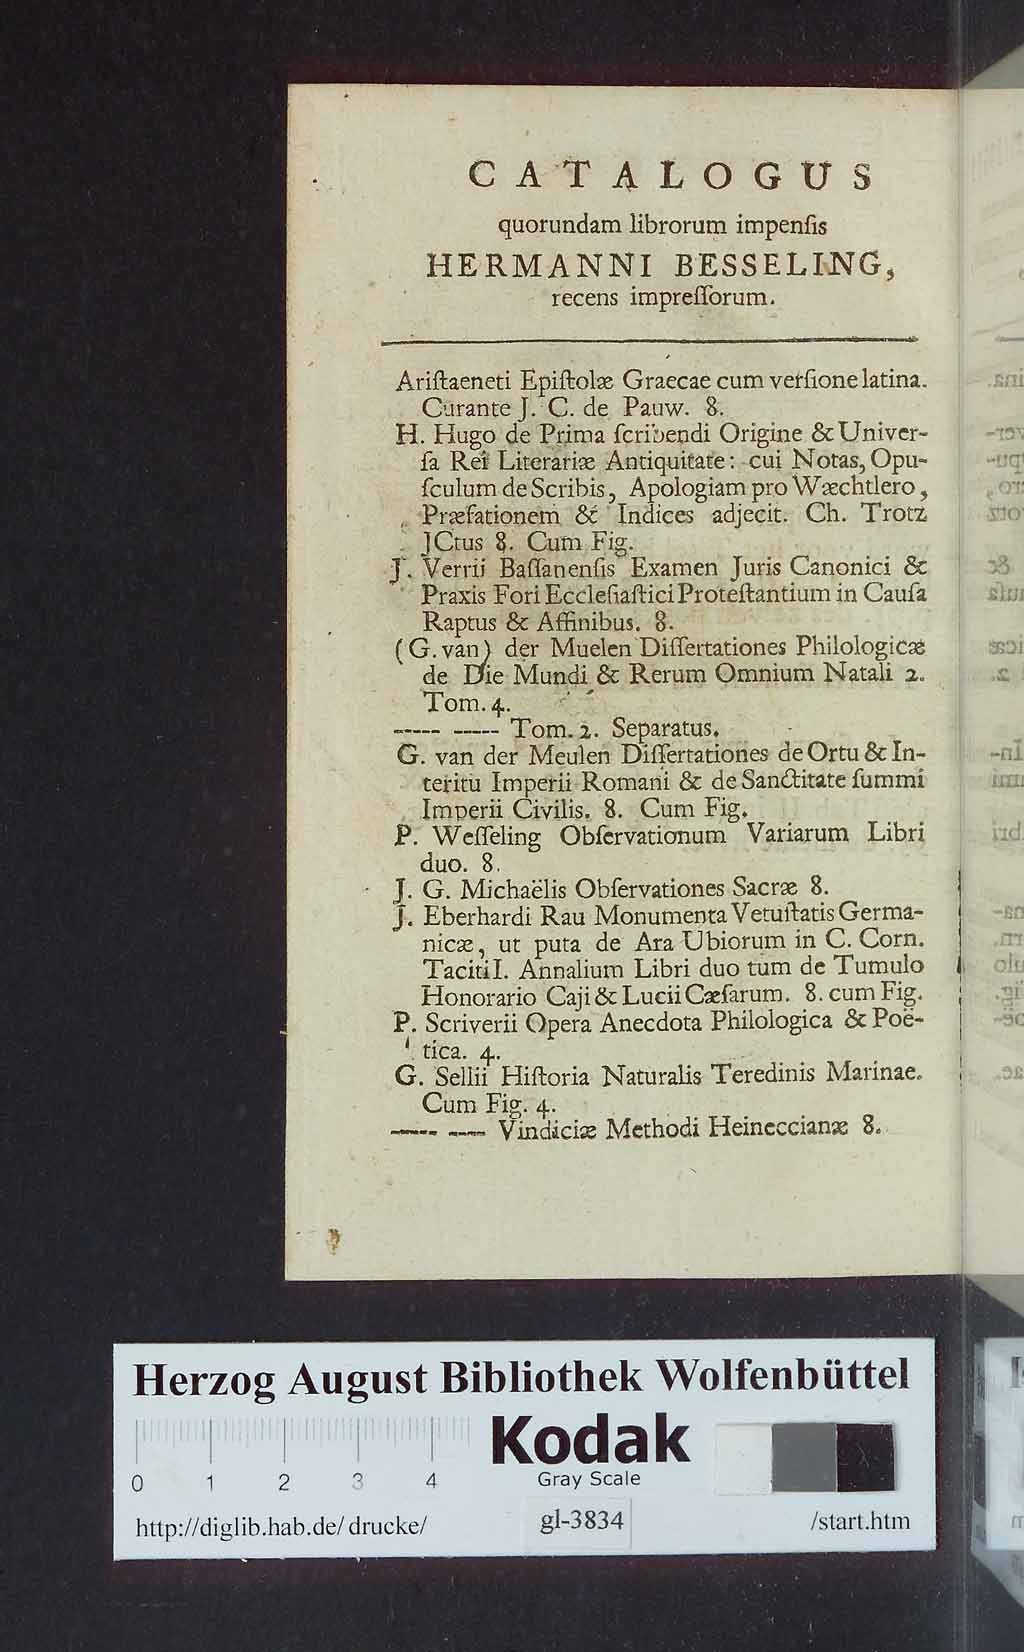 CATALOGUS
quorundam librorum impenſis
HERMANNI BESSELING,
recens impreſſorum.
Ariſtaeneti Epiſtolæ Graecae cum verſione latina.
Curante J. C. de Pauw. 8.
H. Hugo de Prima ſcribendi Origine & Univer-
ſa Rei Literariæ Antiquitate: cui Notas, Opu-
ſculum de Scribis, Apologiam pro Wæchtlero,
Præfationem & Indices adjecit. Ch. Trotz
JCtus 8. Cum Fig.
J. Verrii Baſſanenſis Examen Juris Canonici &
Praxis Fori Eccleſiaſtici Proteſtantium in Cauſa
Raptus & Affinibus. 8.
(G. van) der Muelen Diſſertationes Philologicæ
de Die Mundi & Rerum Omnium Natali 2.
Tom. 4.
----- ----- Tom. 2. Separatus.
G. van der Meulen Diſſertationes de Ortu & In-
teritu Imperii Romani & de Sanctitate ſummi
Imperii Civilis. 8. Cum Fig.
P. Weſſeling Obſervationum Variarum Libri
duo. 8.
J. G. Michaëlis Obſervationes Sacræ 8.
J. Eberhardi Rau Monumenta Vetuſtatis Germa-
nicæ, ut puta de Ara Ubiorum in C. Corn.
Taciti I. Annalium Libri duo tum de Tumulo
Honorario Caji & Lucii Cæſarum. 8. cum Fig.
P. Scriverii Opera Anecdota Philologica & Poë-
tica. 4.
G. Sellii Hiſtoria Naturalis Teredinis Marinae.
Cum Fig. 4.
----- ---- Vindiciæ Methodi Heineccianæ 8.
Herzog August Bibliothek Wolfenbüttel
Kodak
Gray Scale
0 1 2 3 4
http://diglib.hab.de/drucke/ gl-3834 /start.htm